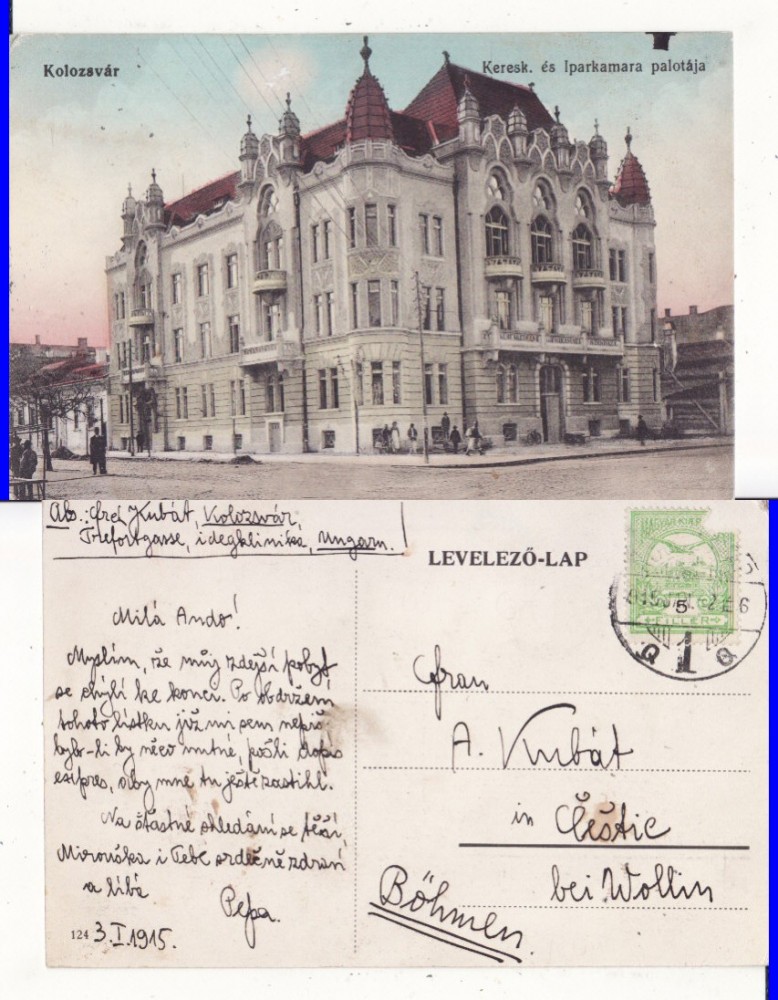 Kolozsvár
Keresk. és Iparkamara palotája
Ab.: Kubát, Kolozsvár,
Trefortgasse, idegklinika, Ungarn.
LEVELEZŐ-LAP
5
FILLÉR
1
Milá Ando!
Myslím, že můj zdejší pobyt
se chýlí ke konci. Po obdržení
tohoto lístku již mi sem nepiš,
bylo-li by něco nutné, pošli dopis
exipres, aby mne tu ještě zastihl.
Na šťastné shledání se těší,
Mirouška i Tebe srdečně zdraví
a líbá
Pepa.
124 3.I.1915.
Frau
A. Kubát
in Čestic
bei Wollin
Böhmen.